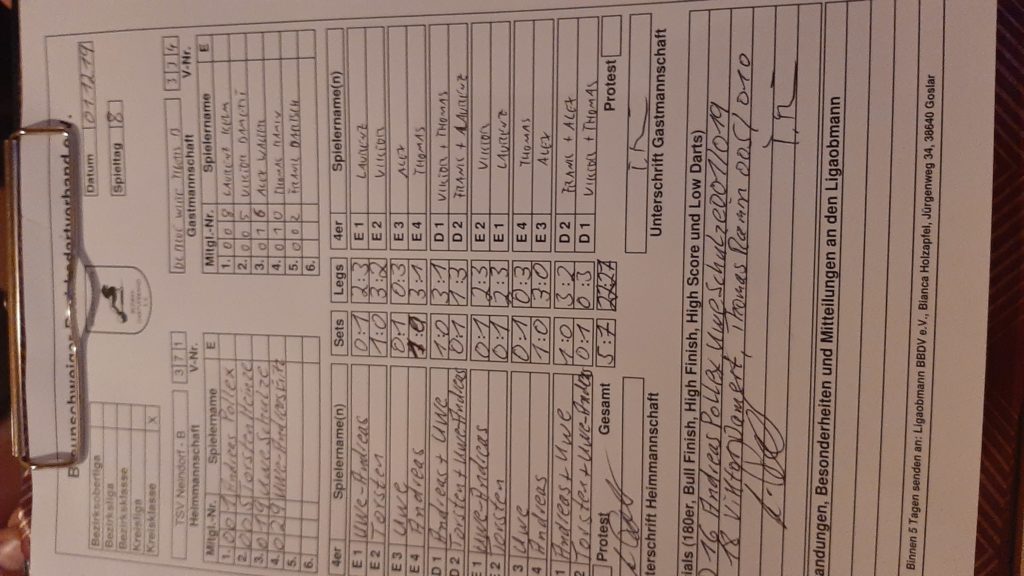 Braunschweiger
Datum 01.12.19
Spieltag 8
Bezirksoberliga
Bezirksliga
Bezirksklasse
Kreisliga
Kreisklasse X
TSV Neindorf - B 371
Heimmannschaft V-Nr.
374
Gastmannschaft V-Nr.
Mitgl.-Nr. Spielername E
1. 001 Andreas Pollex
2. 005 Torsten
3. 019 Uwe Schulze
4. 029 Uwe-Andreas
5.
6.
Mitgl.-Nr. Spielername E
1. 008
2. 005 Viktor
3. 016 Alex
4. 010 Thomas
5. 002 Frank
6.
4er Spielername(n) Sets Legs 4er Spielername(n)
E 1 Uwe-Andreas 0:1 2:3 E 1
E 2 Torsten 1:0 3:2 E 2 Viktor
E 3 Uwe 0:1 0:3 E 3 Alex
E 4 Andreas 1:0 3:1 E 4 Thomas
D 1 Andreas + Uwe 1:0 3:1 D 1 Viktor + Thomas
D 2 Torsten + Uwe-Andreas 0:1 1:3 D 2 Frank +
E 1 Uwe-Andreas 0:1 2:3 E 2 Viktor
2 Torsten 0:1 2:3 E 1
3 Uwe 0:1 0:3 E 4 Thomas
4 Andreas 1:0 3:0 E 3 Alex
1 Andreas + Uwe 1:0 3:2 D 2 Frank + Alex
2 Torsten + Uwe-Andreas 0:1 0:3 D 1 Viktor + Thomas
Protest Gesamt 5:7 Protest
terschrift Heimmannschaft Unterschrift Gastmannschaft
ials (180er, Bull Finish, High Finish, High Score und Low Darts)
16 Andreas Pollex Uwe Schulze 001/019
18 Viktor
andungen, Besonderheiten und Mitteilungen an den Ligaobmann
Binnen 5 Tagen senden an: Ligaobmann BBDV e.V., Bianca Holzapfel, Jürgenweg 34, 38640 Goslar